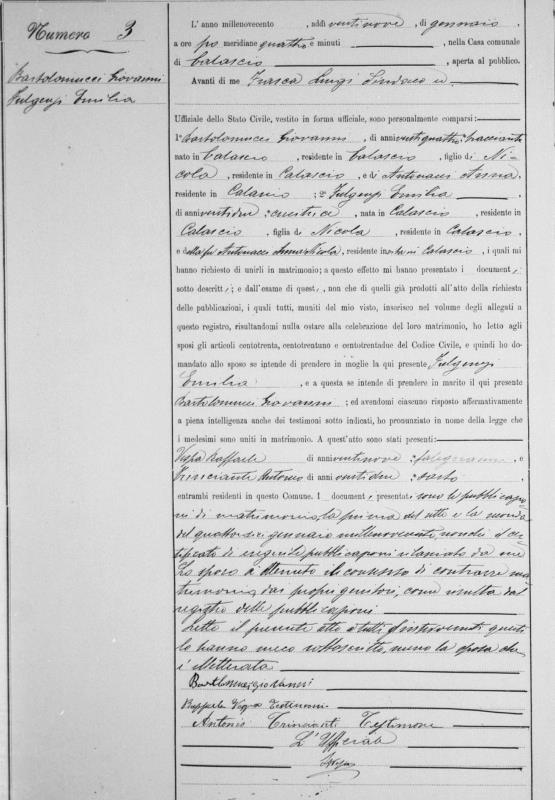 Numero 3
Bartolomucci Giovanni
Fulgenzi Emilia
L'anno millenovecento, addì ventinove, di gennaio,
a ore po meridiane quattro e minuti , nella Casa comunale
di Calascio , aperta al pubblico.
Avanti di me Frasca Luigi Sindaco ed
Uffiziale dello Stato Civile, vestito in forma ufficiale, sono personalmente comparsi:
1° Bartolomucci Giovanni, di anni ventiquattro, bracciante
nato in Calascio, residente in Calascio, figlio di Ni-
cola, residente in Calascio, e di Antonacci Anna,
residente in Calascio; 2° Fulgenzi Emilia
di anni ventidue, cucitrice, nata in Calascio, residente in
Calascio, figlia di Nicola, residente in Calascio,
e della fu Antonacci Anna Nicola, residente in vita in Calascio, i quali mi
hanno richiesto di unirli in matrimonio; a questo effetto mi hanno presentato i document,
sotto descritt,; e dall'esame di quest,, non che di quelli già prodotti all'atto della richiesta
delle pubblicazioni, i quali tutti, muniti del mio visto, inserisco nel volume degli allegati a
questo registro, risultandomi nulla ostare alla celebrazione del loro matrimonio, ho letto agli
sposi gli articoli centotrenta, centotrentuno e centotrentadue del Codice Civile, e quindi ho do-
mandato allo sposo se intende di prendere in moglie la qui presente Fulgenzi
Emilia , e a questa se intende di prendere in marito il qui presente
Bartolomucci Giovanni; ed avendomi ciascuno risposto affermativamente
a piena intelligenza anche dei testimoni sotto indicati, ho pronunziato in nome della legge che
i medesimi sono uniti in matrimonio. A quest'atto sono stati presenti:
Vespa Raffaele di anni ventinove, falegname, e
Trinciante Antonio di anni ventidue, sarto,
entrambi residenti in questo Comune. I document, presentat, sono le pubblicazio
ni di matrimonio, la prima del sette e la seconda
del quattordici gennaio millenovecento, nonché il cer
tificato di eseguite pubblicazioni rilasciato da me
Lo sposo à ottenuto il consenso di contrarre ma
trimonio dai propri genitori, come risulta dal
registro delle pubblicazioni
Letto il presente atto a tutti gl'intervenuti questi
lo hanno meco sottoscritto, meno la sposa che
è illetterata
Bartolomucci Giovanni
Raffaele Vespa Testimoni
Antonio Trincianti Testimone
L'Uffiziale